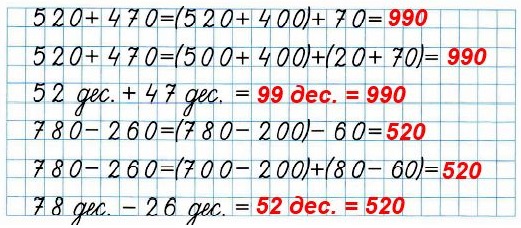 520+ 470=(520+ 400)+ 70= 990
520+ 470=(500+ 400)+(20+ 70)= 990
52 дес. + 47 дес. = 99 дес. = 990
780− 260=(780− 200)− 60= 520
780− 260=(700− 200)+(80− 60)= 520
78 дес. − 26 дес. = 52 дес. = 520